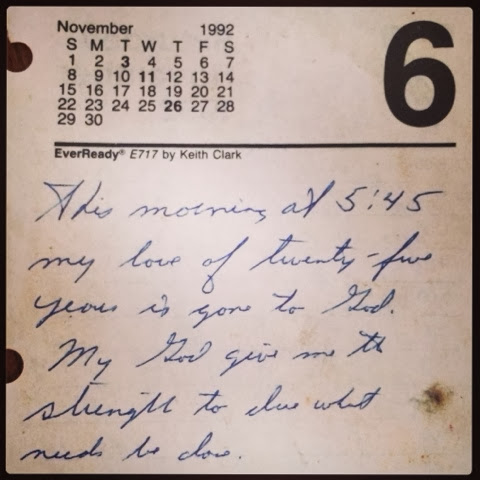 November 1992
6
S M T W T F S
1 2 3 4 5 6 7
8 9 10 11 12 13 14
15 16 17 18 19 20 21
22 23 24 25 26 27 28
29 30
EverReady® E717 by Keith Clark
This morning at 5:45
my love of twenty-five
years is gone to God.
My God give me th
strength to due what
needs be done.